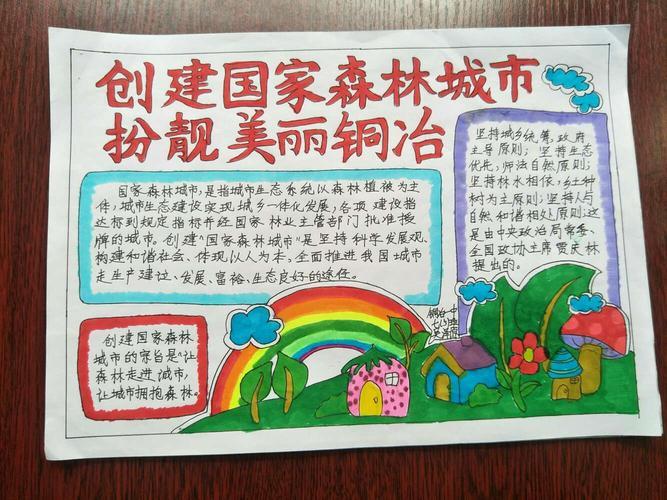 创建国家森林城市
扮靓美丽铜冶
国家森林城市,是指城市生态系统以森林植被为主
体,城市生态建设实现城乡一体化发展,各项建设指
达标到规定指标并经国家林业主管部门批准授
牌的城市。创建"国家森林城市"是坚持科学发展观、
构建和谐社会、体现以人为本,全面推进我国城市
走生产建设、发展、富裕、生态良好的途径。
坚持城乡统筹,政府
主导原则;坚持生态
优先,师法自然原则;
坚持林水相依,乡土种
树为主原则;坚持人与
自然和谐相处原则;这
是由中央政治局常委、
全国政协主席贾庆林
提出的。
创建国家森林
城市的宗旨是:让
森林走进城市,
让城市拥抱森林。
铜冶一中